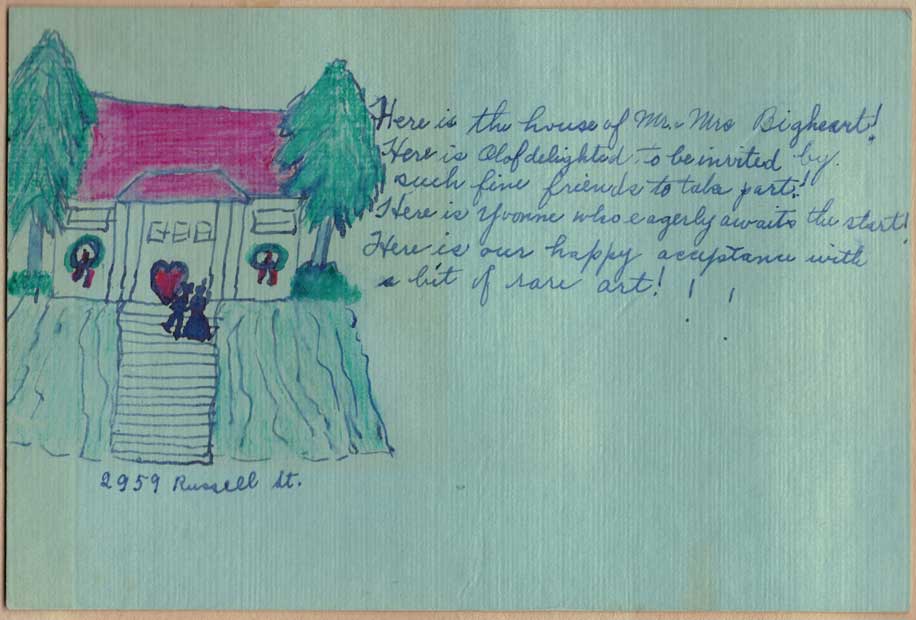 Here is the house of Mr. Mrs Bigheart!
Here is Olof delighted to be invited by
such fine friends to take part!
Here is Yvonne who eagerly awaits the start!
Here is our happy acceptance with
a bit of rare art! ! !
2959 Russell St.